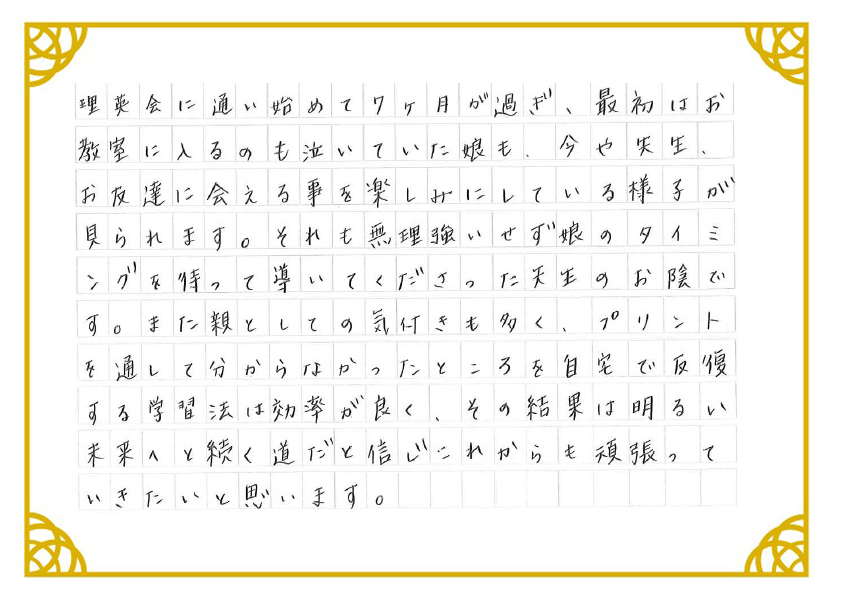 理英会に通い始めて7ヶ月が過ぎ、最初はお
教室に入るのも泣いていた娘も、今や先生、
お友達に会える事を楽しみにしている様子が
見られます。それも無理強いせず娘のタイミ
ングを待って導いてくださった先生のお陰で
す。また親としての気付きも多く、プリント
を通して分からなかったところを自宅で反復
する学習法は効率が良く、その結果は明るい
未来へと続く道だと信じこれからも頑張って
いきたいと思います。